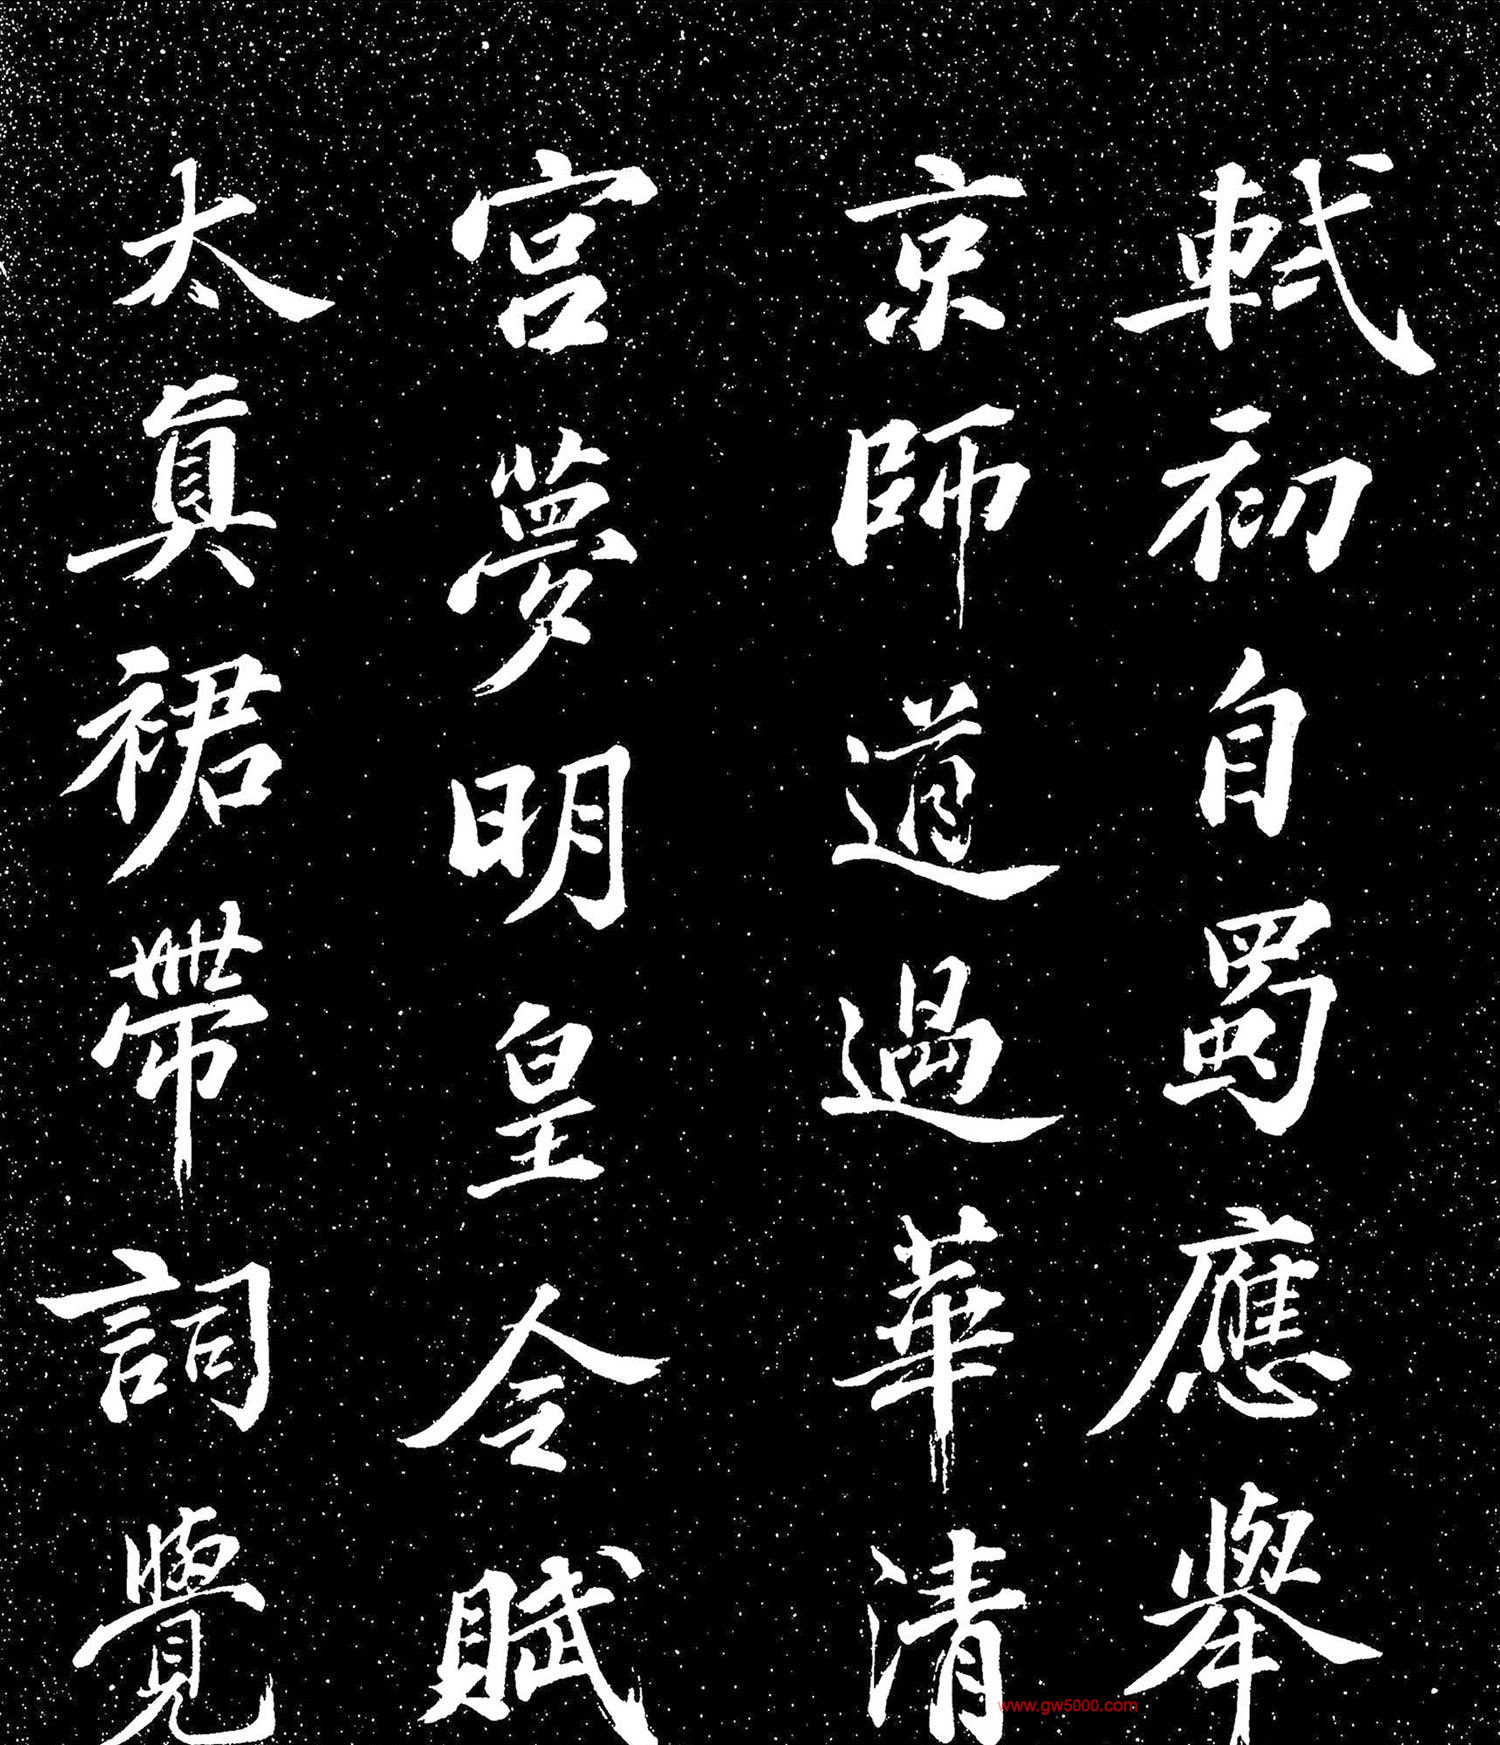 軾初自蜀應舉
京師道過華清
宮夢明皇令賦
太真裙帶詞覺
www.gw5000.com